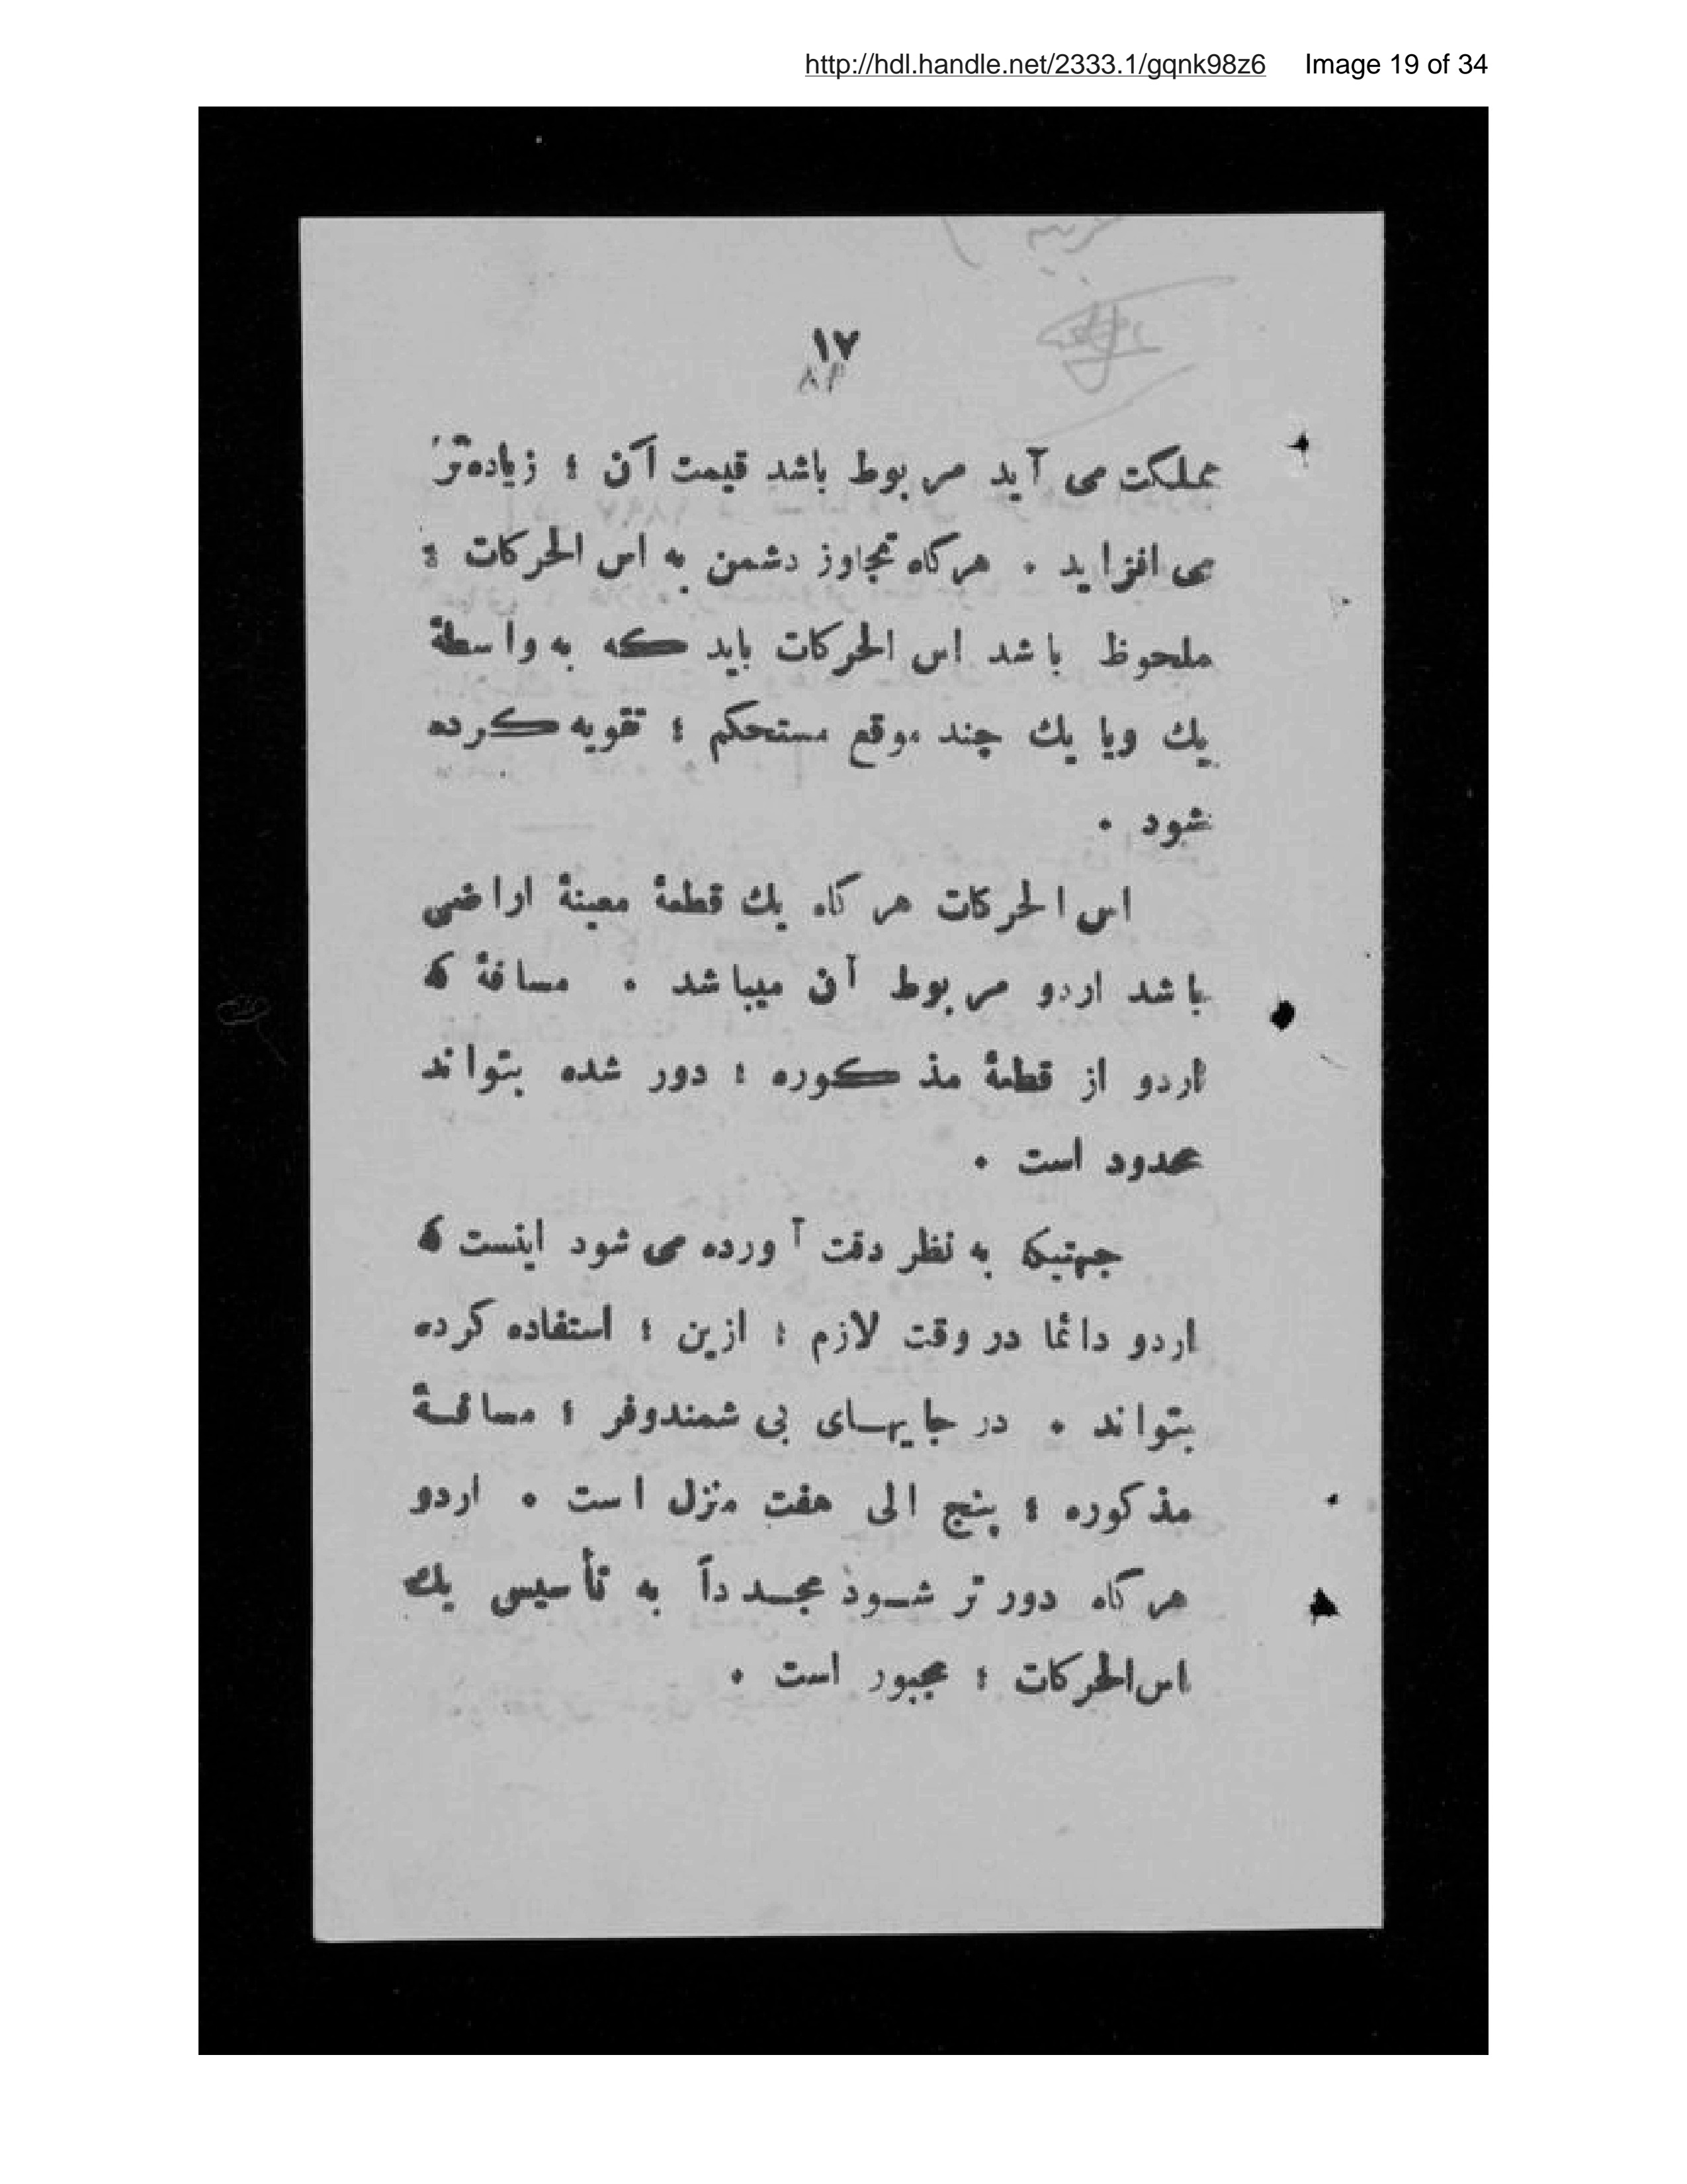 http://hdl.handle.net/2333.1/gqnk98z6 Image 19 of 34
۱۷
۹۸
مملکت می آید مربوط باشد قیمت آن ؛ زیاده تر
می افزاید ٠ هرکاه تجاوز دشمن به اس الحرکات ؛
ملحوظ باشد اس الحرکات باید که به واسطۀ
یك ویا یك چند موقع مستحکم ؛ تقویه کرده
شود ٠
اس الحرکات هر کاه یك قطعۀ معینۀ اراضی
باشد اردو مربوط آن میباشد ٠ مسافۀ که
اردو از قطعۀ مذکوره ؛ دور شده بتواند
محدود است ٠
جهتیکه به نظر دقت آورده می شود اینست که
اردو دائما در وقت لازم ؛ ازین ؛ استفاده کرده
بتواند ٠ در جایهای بی شمندوفر ؛ مسافۀ
مذکوره ؛ پنج الی هفت منزل است ٠ اردو
هر کاه دور تر شود مجدداً به تأسیس یك
اس الحرکات ؛ مجبور است ٠